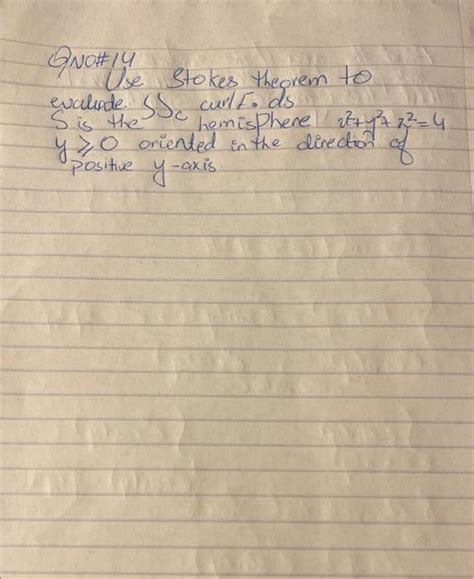 Q NO#14
Use Stokes theorem to
evaluate ∫∫c curl F. ds
S is the hemisphere x²+y²+z²=4
y ≥ 0 oriented in the direction of
positive y-axis.